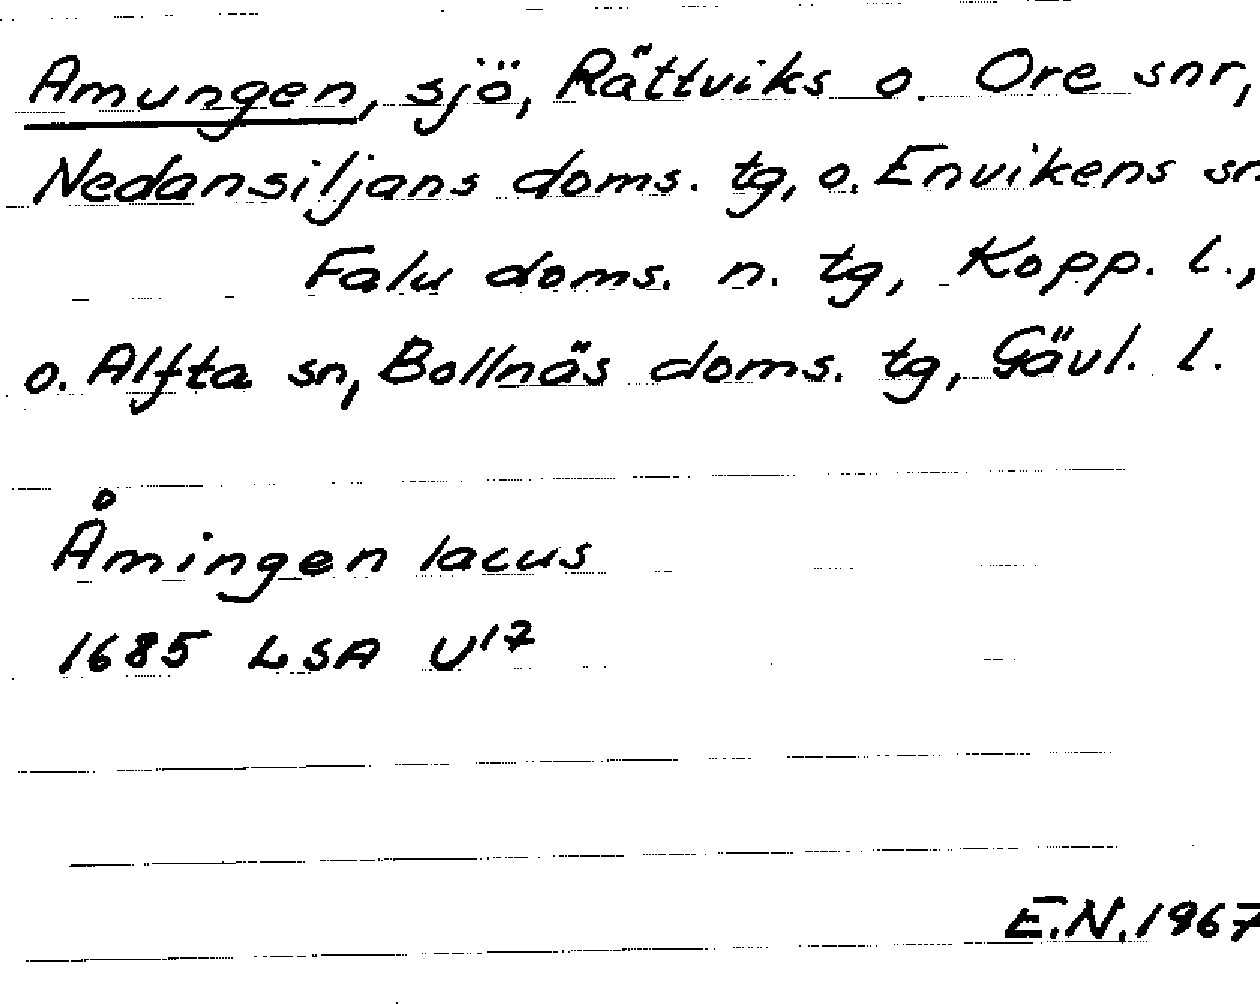 Amungen, sjö, Rättviks o. Ore snr,
Nedansiljans doms. tg, o. Envikens sn
Falu doms. n. tg, Kopp. l.,
o. Alfta sn, Bollnäs doms. tg, Gävl. l.
Åmingen lacus
1685 LSA U17
E.N. 1967